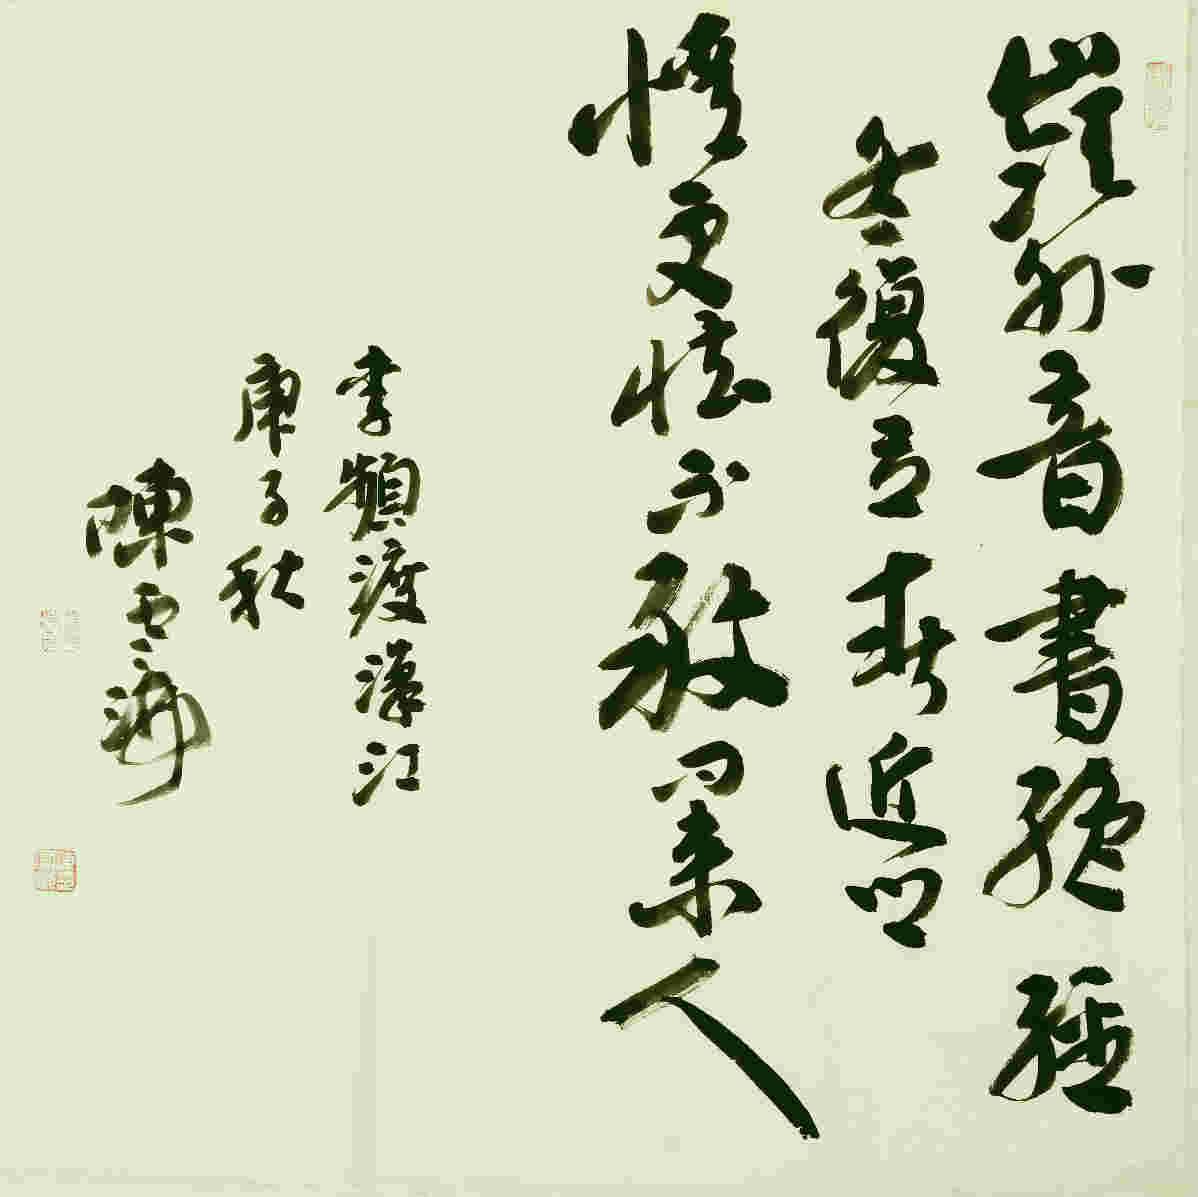 嶺外音書絶經
冬復春近鄉
情更怯不敢問來人
李頻渡漢江
庚子秋
陳雲